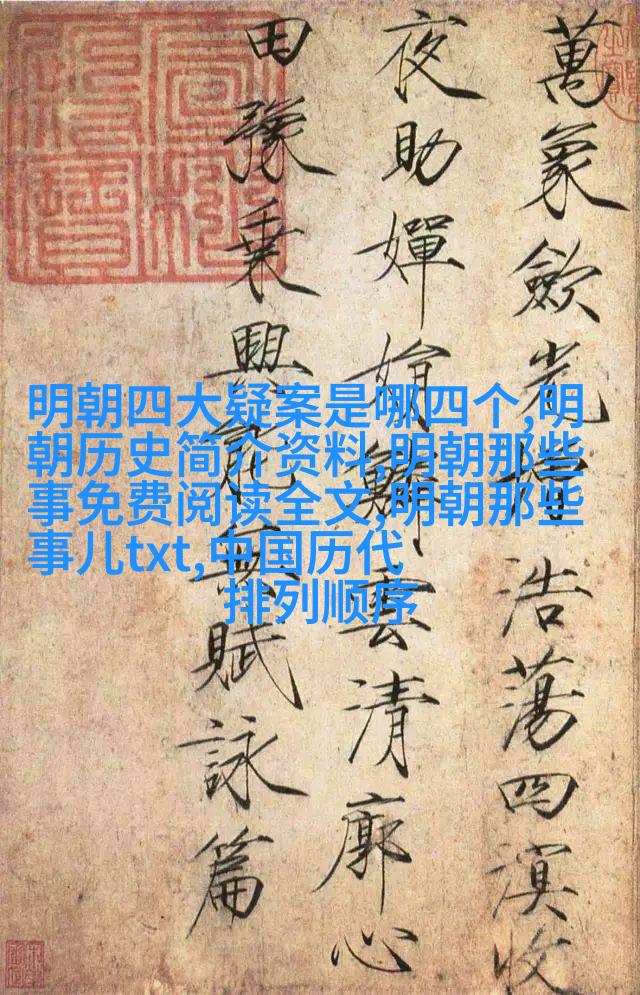 萬象歛光增浩蕩四溟收
夜助嬋娟鱗雲清廓心
田豫乗興能無賦詠篇
明朝四大疑案是哪四个,明
朝历史简介资料,明朝那些
事免费阅读全文,明朝那些
事儿txt,中国历代
排列顺序